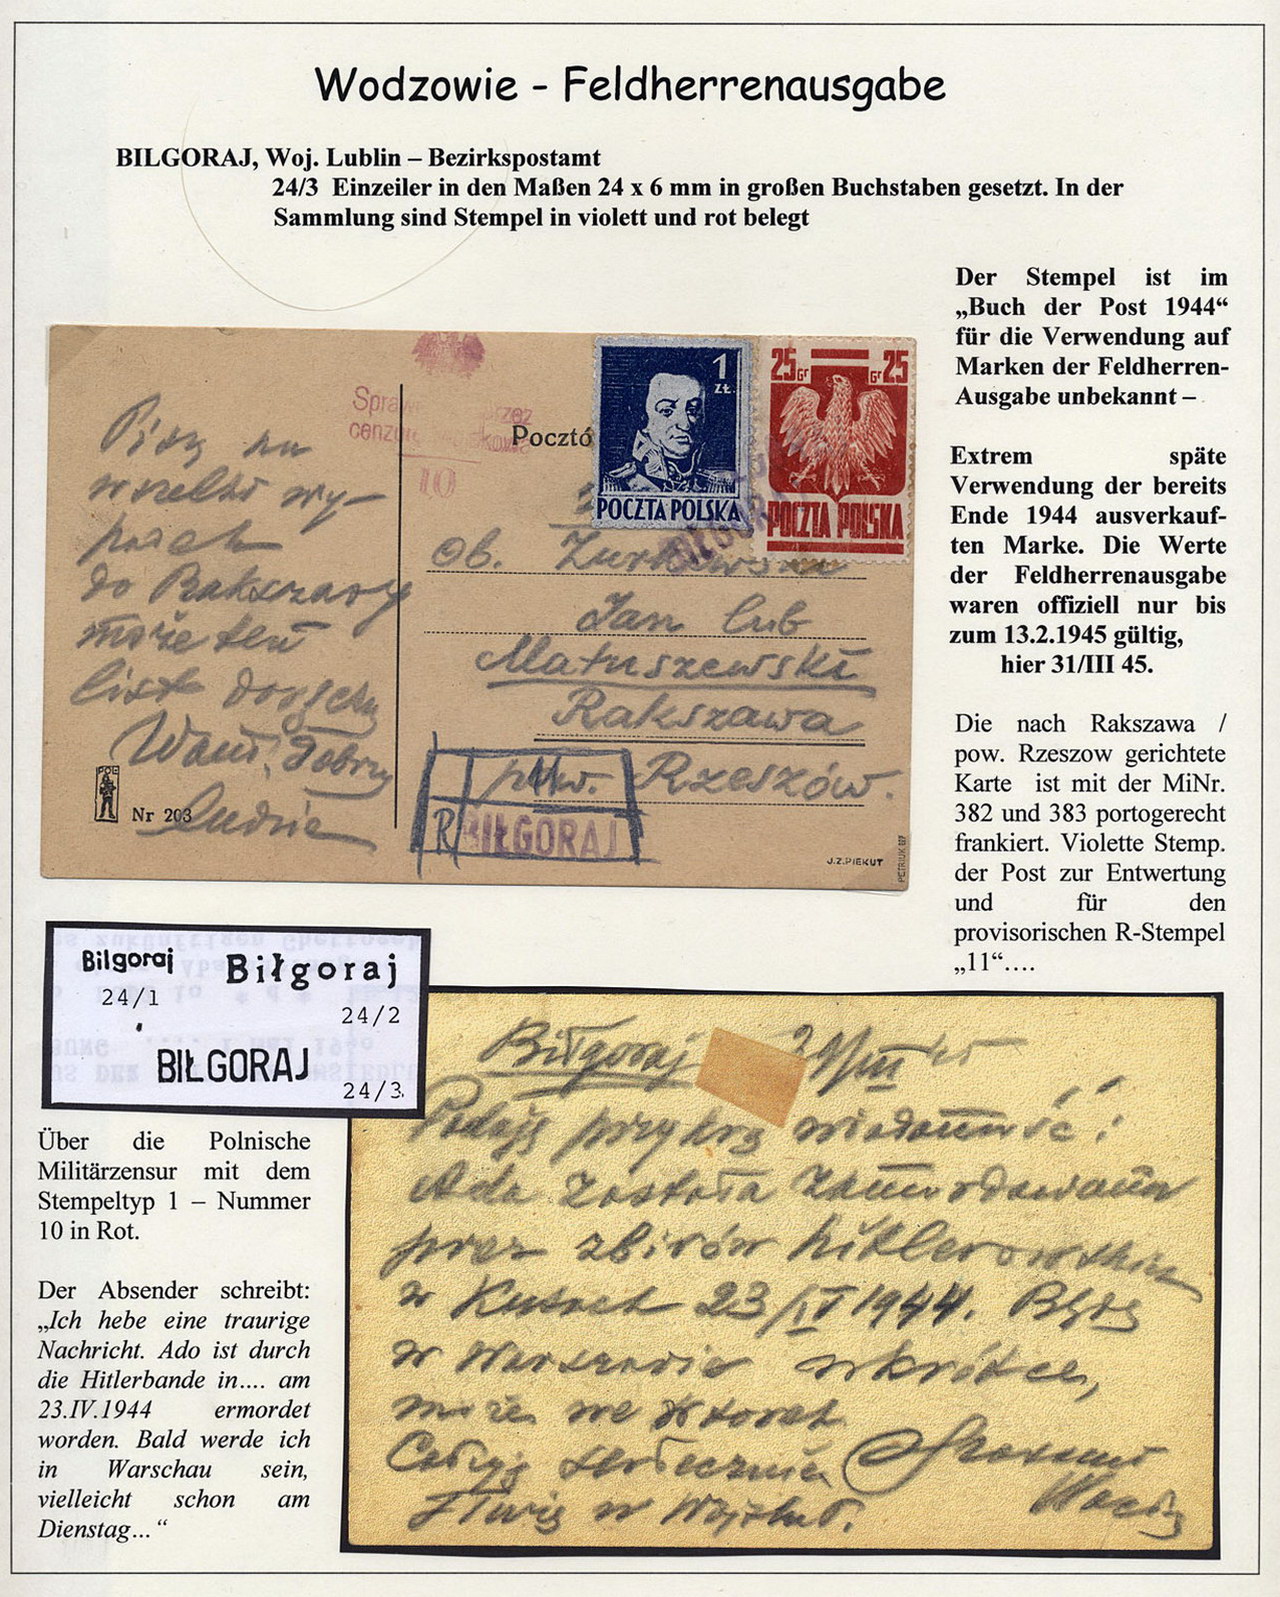 Wodzowie - Feldherrenausgabe
BILGORAJ, Woj. Lublin – Bezirkspostamt
24/3 Einzeiler in den Maßen 24 x 6 mm in großen Buchstaben gesetzt. In der
Sammlung sind Stempel in violett und rot belegt
Der Stempel ist im
„Buch der Post 1944“
für die Verwendung auf
Marken der Feldherren-
Ausgabe unbekannt –
Extrem späte
Verwendung der bereits
Ende 1944 ausverkauf-
ten Marke. Die Werte
der Feldherrenausgabe
waren offiziell nur bis
zum 13.2.1945 gültig,
hier 31/III 45.
Die nach Rakszawa /
pow. Rzeszow gerichtete
Karte ist mit der MiNr.
382 und 383 portogerecht
frankiert. Violette Stemp.
der Post zur Entwertung
und für den
provisorischen R-Stempel
„11“….
10
Pocztó
1
ZŁ.
POCZTA POLSKA
25 Gr Gr 25
POCZTA POLSKA
Piszę na
wszelki wy-
do Rakszawy
może ten
Nr 203
ob.
Jan lub
Matuszewski
Rakszawa
pow. Rzeszów.
11
R BIŁGORAJ
J.Z.PIEKUT
Bilgoraj
24/1
Biłgoraj
24/2
BIŁGORAJ
24/3
Über die Polnische
Militärzensur mit dem
Stempeltyp 1 – Nummer
10 in Rot.
Der Absender schreibt:
„Ich hebe eine traurige
Nachricht. Ado ist durch
die Hitlerbande in…. am
23.IV.1944 ermordet
worden. Bald werde ich
in Warschau sein,
vielleicht schon am
Dienstag…“
Biłgoraj 31/III 45
Podaję przykrą wiadomość:
Ada została zamordowana
przez zbirów hitlerowskich
w 23/IV 1944. Będę
w Warszawie wkrótce,
może we wtorek
Całuję serdecznie